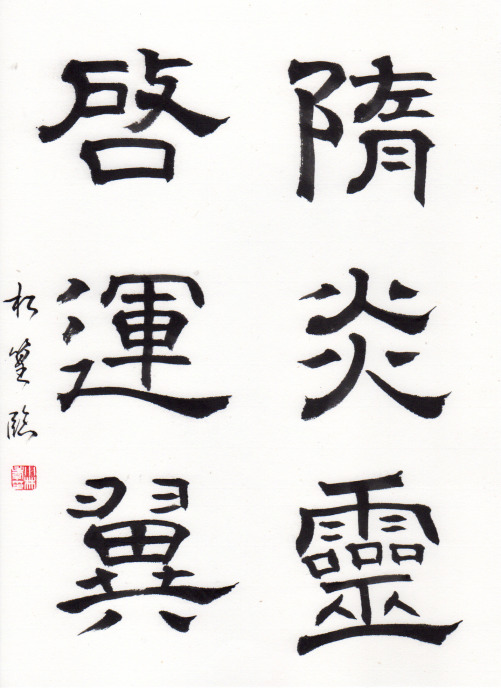 隋炎靈
啓運翼
松篁臨